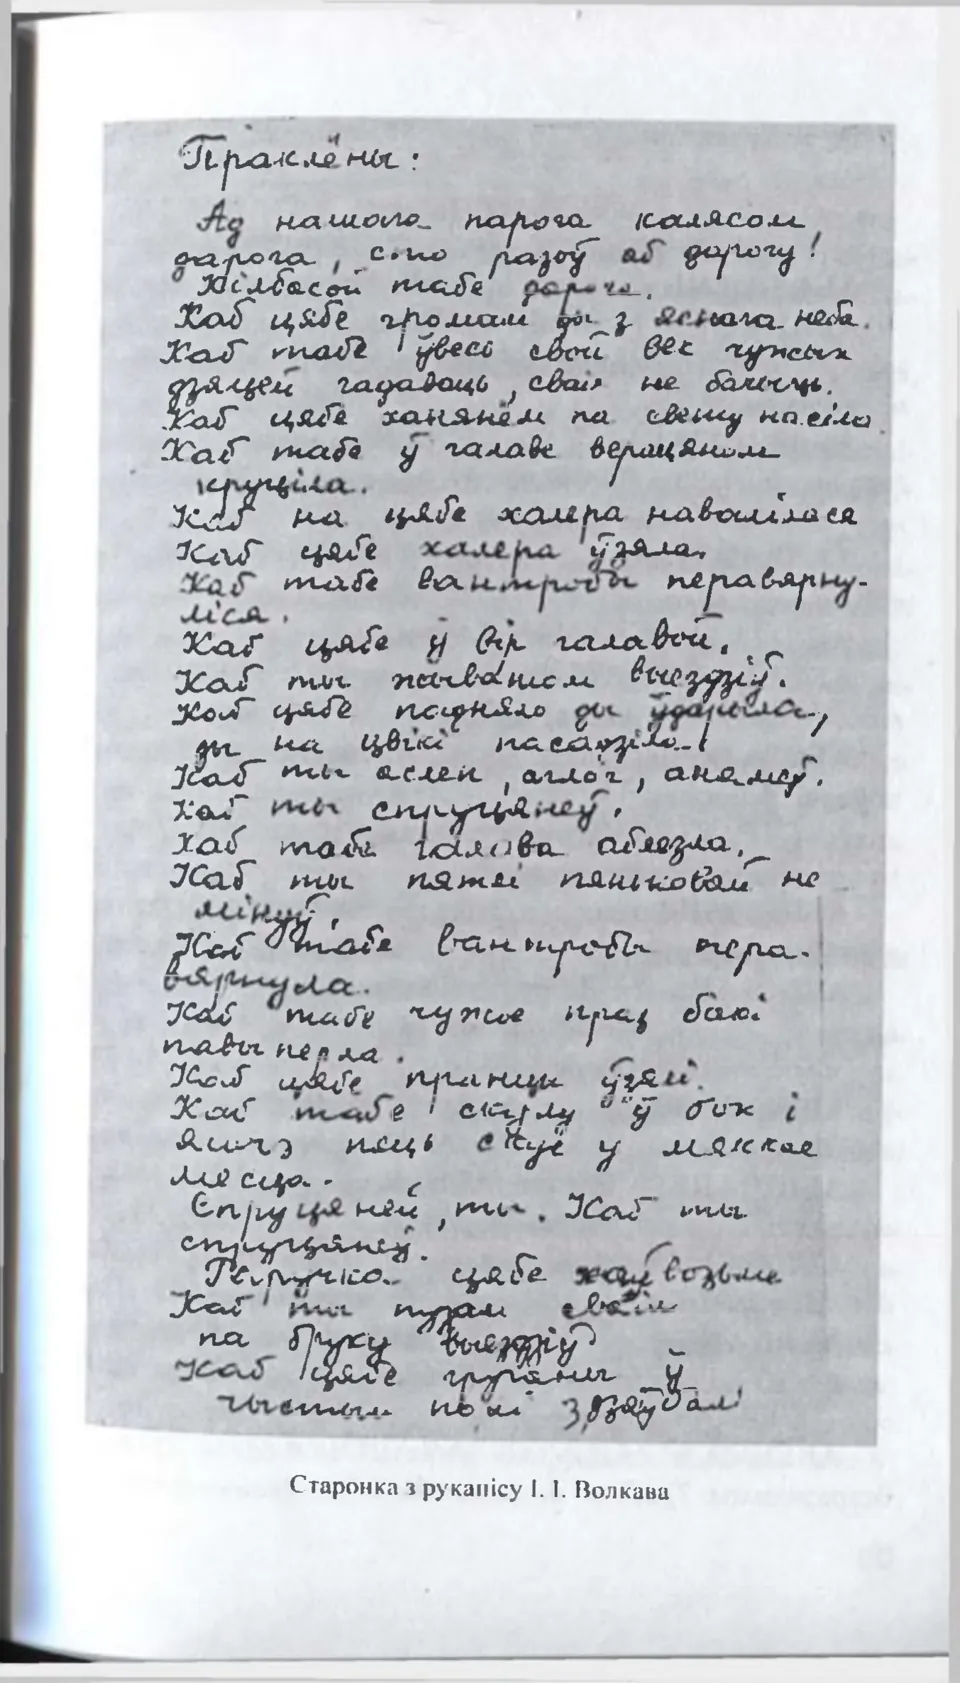 Праклёны:
Ад нашага парога калясом
дарога, сто разоў аб дарогу!
Кілбасой табе дарога.
Каб цябе громам ды з яснага неба.
Каб табе ўвесь свой век чужых
дзяцей гадаваць, сваіх не бачыць.
Каб цябе ханянём па свету насіла.
Каб табе ў галаве верацяном
круціла.
Каб на цябе халера навалілася
Каб цябе халера ўзяла.
Каб табе вантробы перавярну-
ліся.
Каб цябе ў вір галавой.
Каб ты жыватом выездзіў.
Каб цябе падняло ды ўдарыла,
ды на цвікі пасадзіла!
Каб ты аслеп, аглох, анямеў.
Каб ты спруцянеў.
Каб табе галава аблезла.
Каб ты пятлі пяньковай не
мінуў.
Каб табе вантробы пера-
вярнула.
Каб табе чужое праз бакі
павыперла.
Каб цябе пранцы ўзялі.
Каб табе скулу ў бок і
яшчэ пяць у мяккае
месца.
Спруцяней, ты. Каб ты
спруцянеў.
цябе хай возьме
Каб ты пузам сваім
па бруку выездзіў
Каб цябе груганы ў
чыстым полі здзяўбалі
Старонка з рукапісу І. І. Волкава